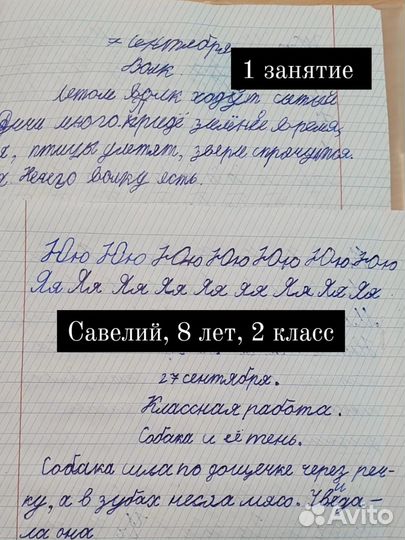 7 сентября
Волк
1 занятие
Летом волк ходит сытый
Дичи много везде зелёное время
х, птицы улетят, звери спрячутся.
х. Нечего волку есть.
Юю Юю Юю Юю Юю Юю Юю
Яя Яя Яя Яя Яя Яя Яя Яя Яя
Савелий, 8 лет, 2 класс
27 сентября.
Классная работа.
Собака и её тень.
Собака шла по дощечке через реч-
ку, а в зубах несла мясо. Увида-
ла она
Avito